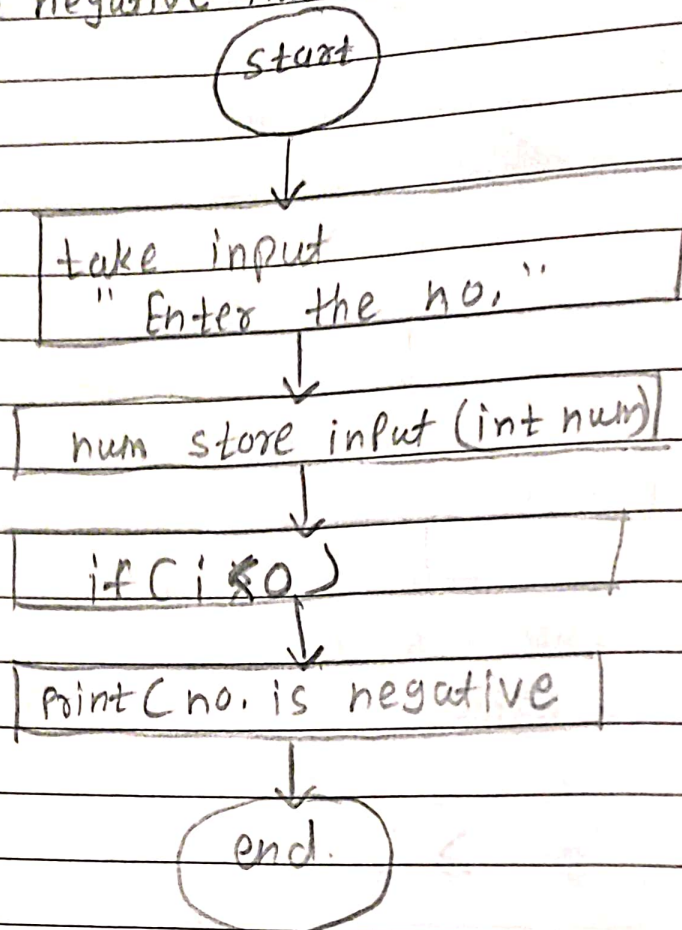 negative
start
take input
" Enter the no. "
num store input (int num)
if ( i < 0 )
Print ( no. is negative
end.